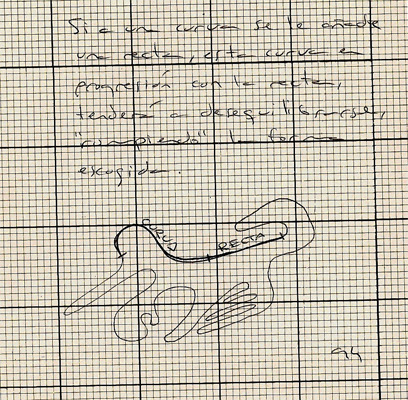 Si a una curva se le añade
una recta, esta curva en
progresión con la recta,
tenderá a desequilibrarse,
"rompiendo" la forma
escogida.
CURVA
RECTA
94